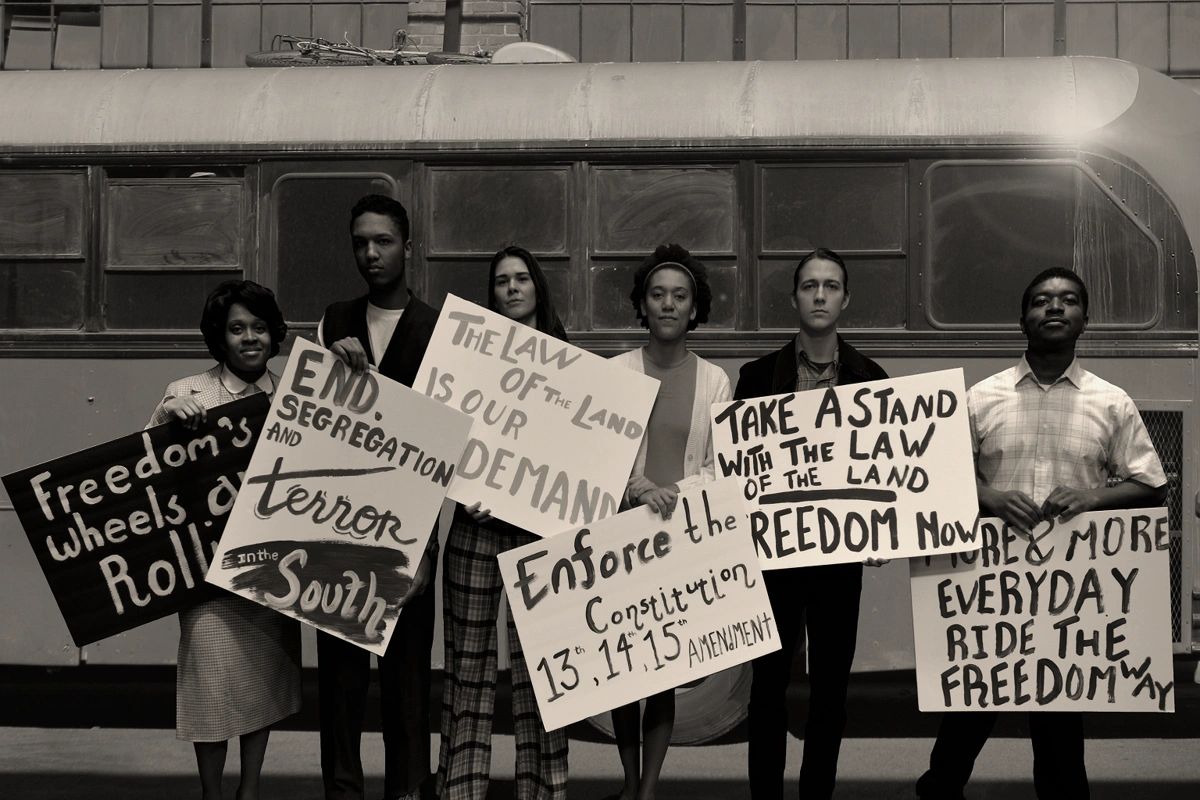 Freedom's
wheels
Rolli
END.
SEGREGATION
AND
terror
in the
South
THE LAW
OF THE LAND
IS OUR
DEMAND
Enforce the
Constitution
13th, 14th, 15th AMENDMENT
TAKE A STAND
WITH THE LAW
OF THE LAND
FREEDOM NOW
MORE & MORE
EVERYDAY
RIDE THE
FREEDOM WAY